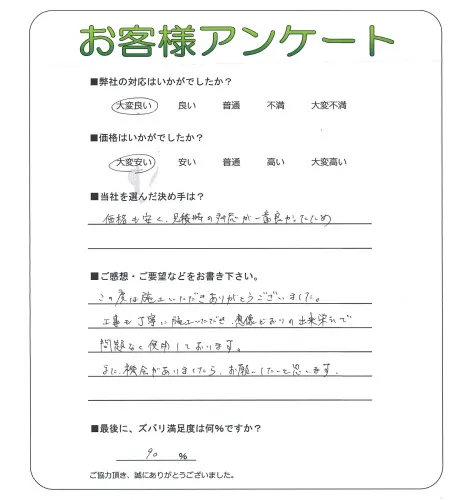 お客様アンケート
■弊社の対応はいかがでしたか？
大変良い 良い 普通 不満 大変不満
■価格はいかがでしたか？
大変安い 安い 普通 高い 大変高い
■当社を選んだ決め手は？
価格も安く、見積時の対応が一番良かったため
■ご感想・ご要望などをお書き下さい。
この度は施工いただきありがとうございました。
工事も丁寧に施工いただき、想像どおりの出来栄えで
問題なく使用しております。
また、機会がありましたら、お願いしたいと思います。
■最後に、ズバリ満足度は何％ですか？
90 ％
ご協力頂き、誠にありがとうございました。